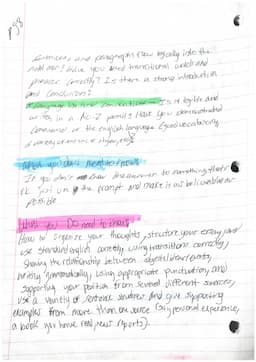 p58
sentences, and paragraphs flow logically into the
next one? Have you used transitional words and
phrases correctly? Is there a strong introduction
and conclusion?
Language is legible and
written in a No. 2 pencil? Have you demonstrated
command of the english language (good vocabulary,
a variety of sentence
If you don't know the answer to something that's
ok just use the prompt and make it as believable as
possible
What you DO need to know
How to organize your thoughts, structure your essay, and
use standard english correctly, using transitions correctly,
showing the relationship between
writing grammatically, using appropriate punctuation, and
supporting your position from several different sources,
use a variety of sentence structures and give supporting
examples from more than one source (eg personal experience,
a book you have read, news reports).